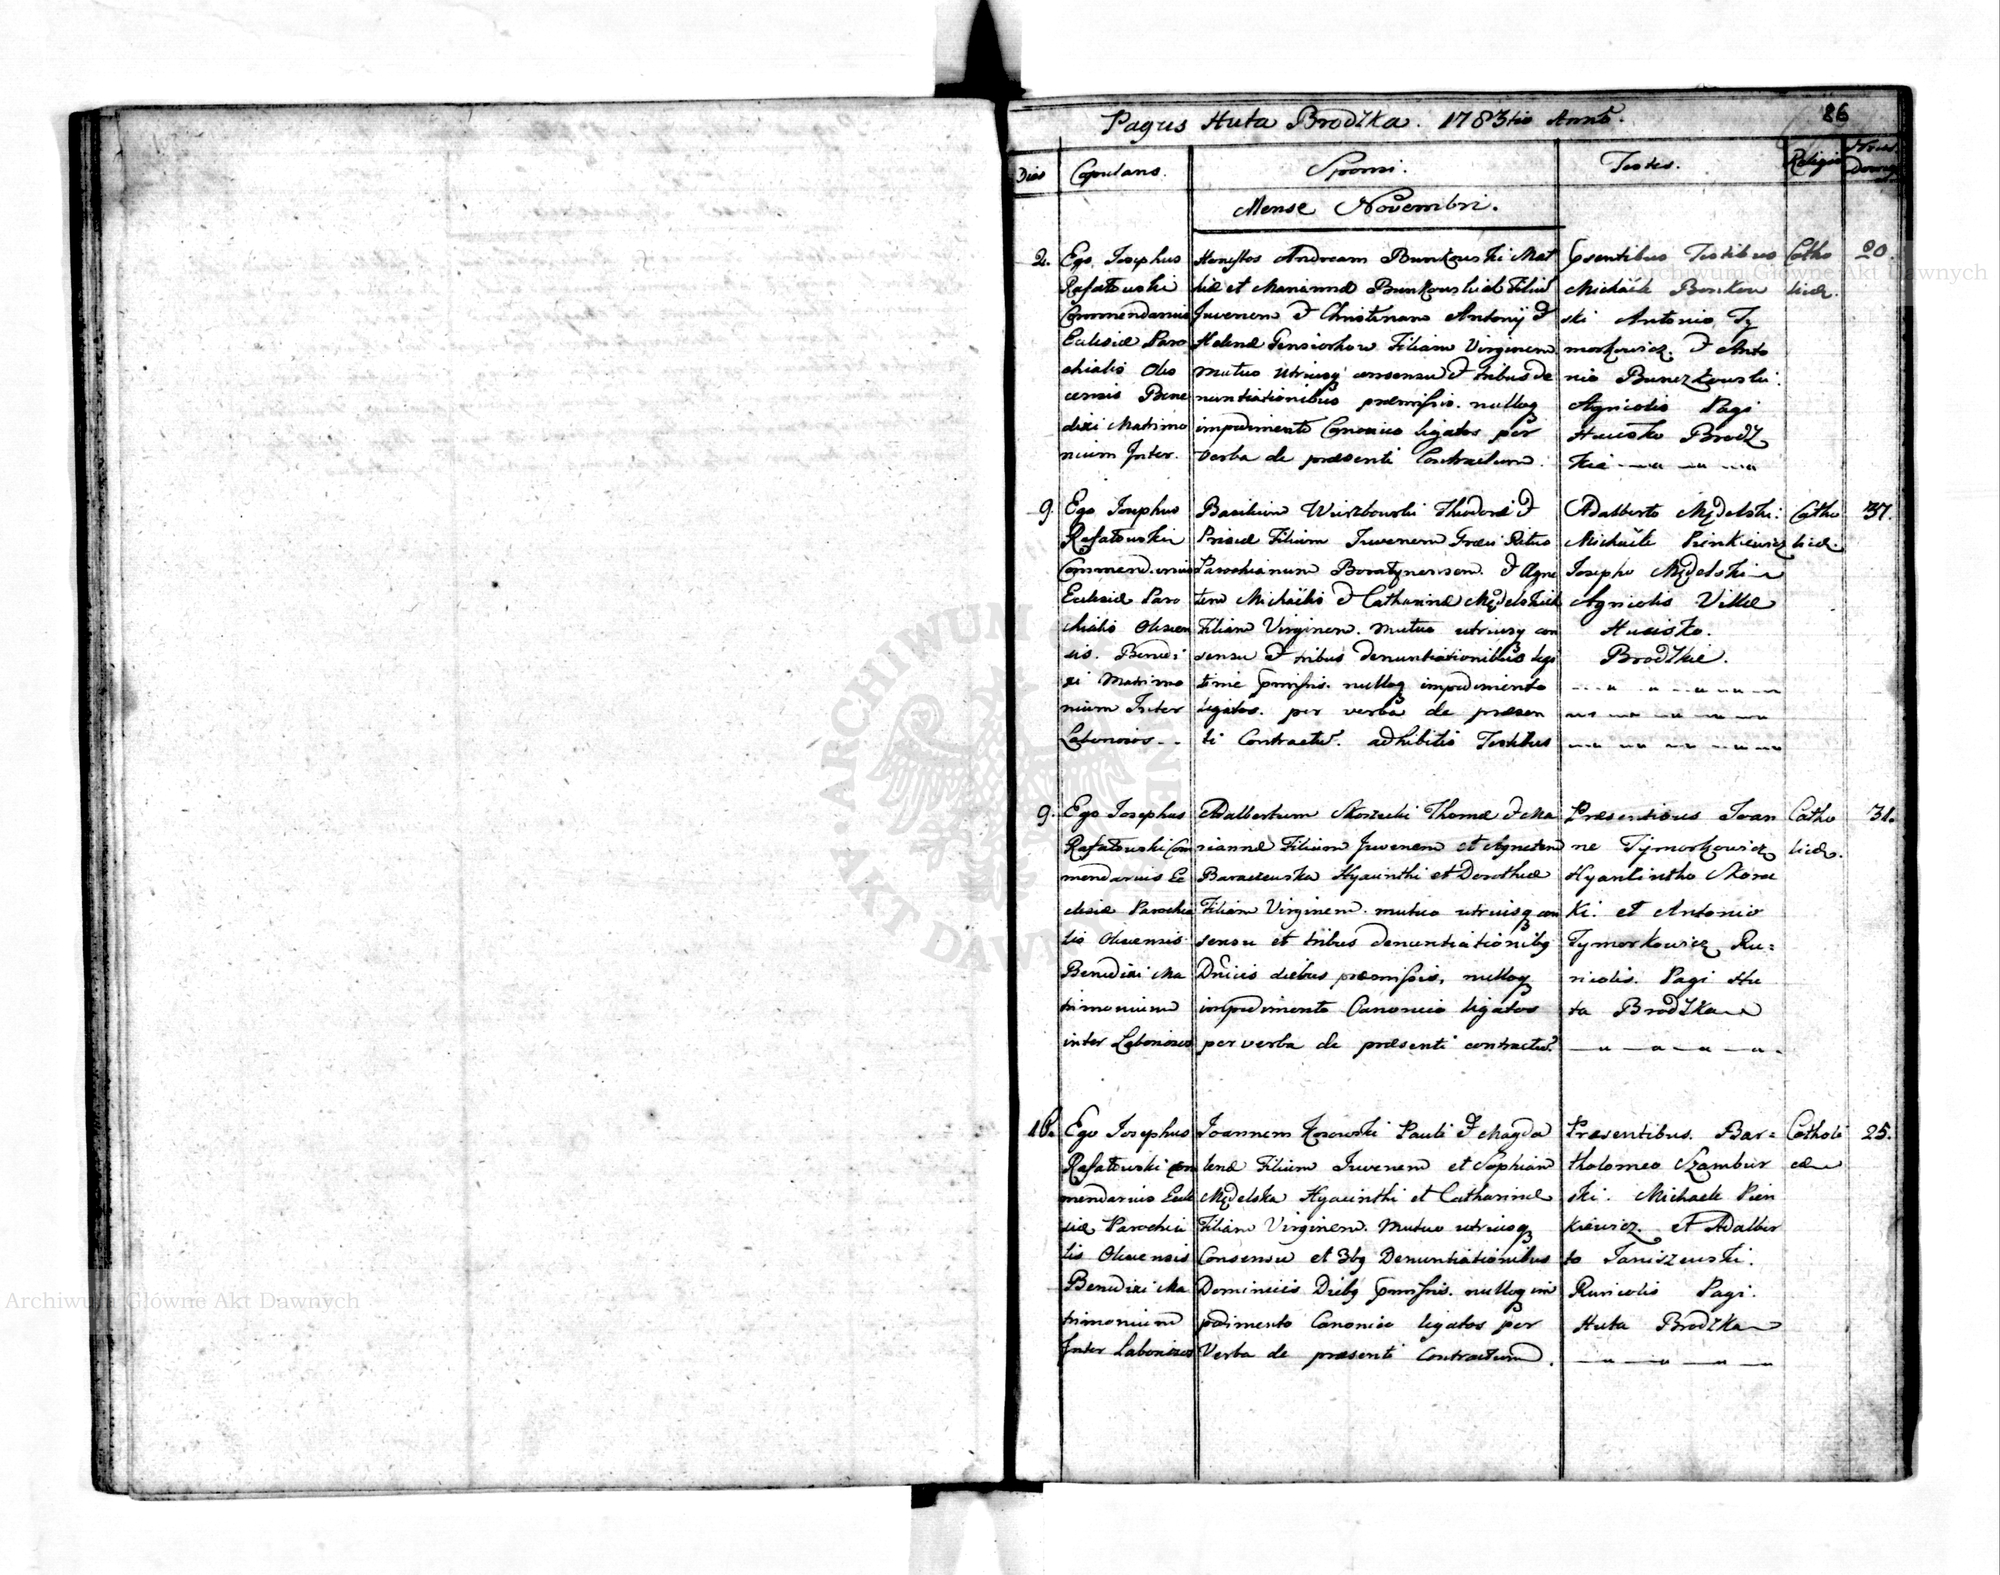 Pagus Huta Brodzka. 1783tio Anno.
86
Dies
Copulans.
Sponsi.
Testes.
Religio
Nrus Domus
Mense Novembri.
2.
Ego Josephus
Rafałowski
Commendarius
Eclesiæ Paro
chialis Ole
censis Bene
dixi Matrimo
nium Inter.
Honestos Andream Bunkowski Mat
hiæ et Mariannæ Bunkowskich Filiū
Juvenem & Christinam Antonij &
Helenæ Filiam Virginem
mutuo utriusq consensu & tribus de
nuntiationibus præmissis. nulloq
impedimento Canonico ligatos per
Verba de præsenti Contractum.
Psentibus Testibus
Michaele Bonkow
ski Antonio Ty
morkowicz. & Anto
nio
Agricolis Pagi
Hucisko Brodz
kie
Catho
licæ.
20.
9.
Ego Josephus
Rafałowski
Commendarius
Eclesiæ Paro
chialis Olexien
sis. Benedi
xi Matrimo
nium Inter
Laboriosos
Basilium Wierzbowski Theodori &
Filium Juvenem Græci Ritus
Parochianum & Agne
tem Michaëlis & Catharinæ Mędelskich
Filiam Virginem. mutuo utriusq con
sensu & tribus denuntiationibus legi
time pmissis. nulloq impedimento
ligatos. per verba de præsen
ti Contractū. adhibitis Testibus
Adalberto Mędelski.
Michaële Pienkiewicz
Josepho Mędelski
Agricolis Villæ
Hucisko.
Brodzkie.
Catho
licæ.
37.
9.
Ego Josephus
Rafałowski Com
mendarius Ec
clesiæ Parochia
lis Olexensis
Benedixi Ma
trimonium
inter Laboriosos
Adalbertum Thomæ & Ma
riannæ Filium Juvenem et Agnetem
Hyacinthi et Dorotheæ
Filiam Virginem. mutuo utriusq con
sensu et tribus denuntiationibq
Dnicis diebus præmissis, nulloq
impedimento Canonico ligatos
per verba de præsenti contractū.
Præsentibus Joan
ne Tymorkowicz
Hyacintho
ki. et Antonio
Tymorkowicz Ru=
ricolis. Pagi Hu
ta Brodzka
Catho
licæ.
31.
16.
Ego Josephus
Rafałowski Com
mendarius Eccle
siæ Parochia
lis Olexensis
Benedixi Ma
trimonium
Inter Laboriosos
Joannem Kosowski Pauli & Magda
lenæ Filium Juvenem et Sophiam
Mędelska Hyacinthi et Catharinæ
Filiam Virginem. Mutuo utriusq
Consensu et 3bq Denuntiationibus
Dominicis Diebq pmissis. nulloq im
pedimento Canonico ligatos per
Verba de præsenti Contractum.
Præsentibus. Bar=
tholomeo Szambur
ski. Michaele Pien
kiewicz. et Adalber
to Janiszewski.
Ruricolis Pagi.
Huta Brodzka
Catholi
cæ
25.
Archiwum Główne Akt Dawnych
Archiwum Główne Akt Dawnych